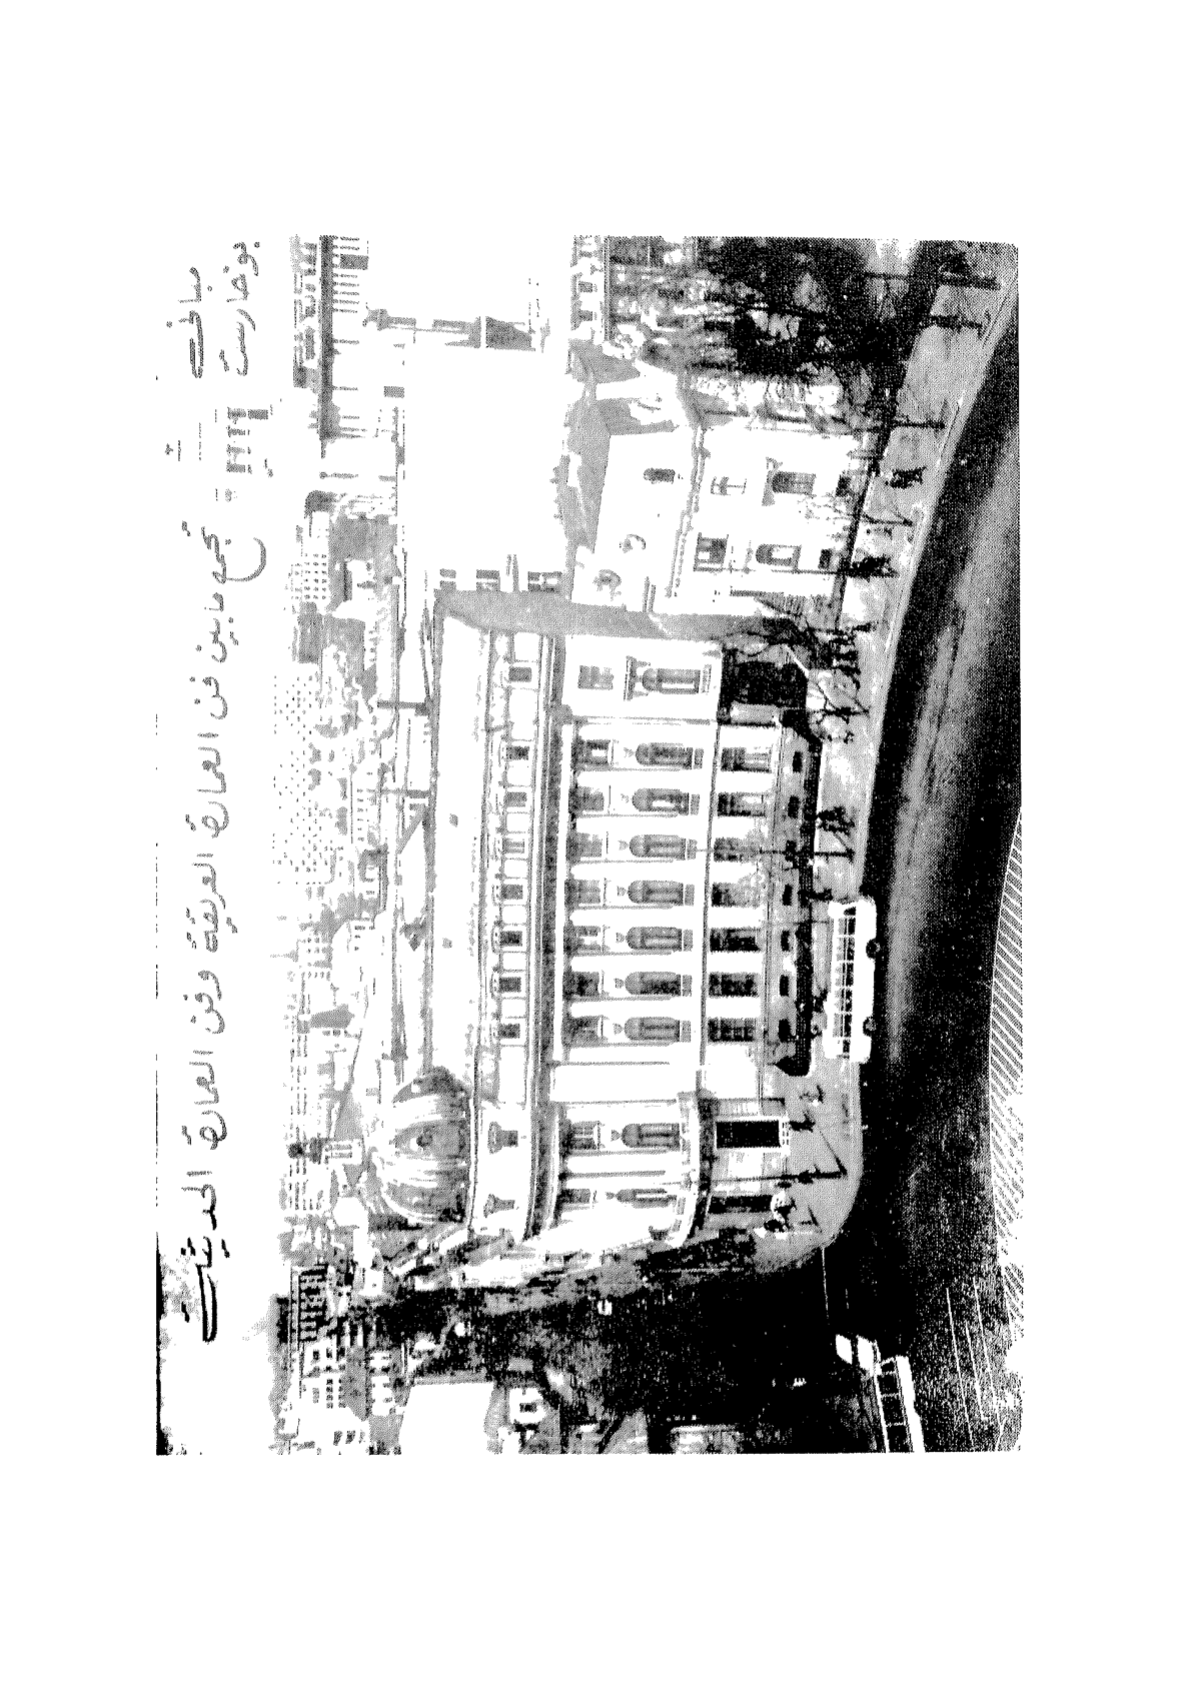 مباني
بوخارست تجمع مابين فن العمارة العريقة وفن العمارة الحديثة